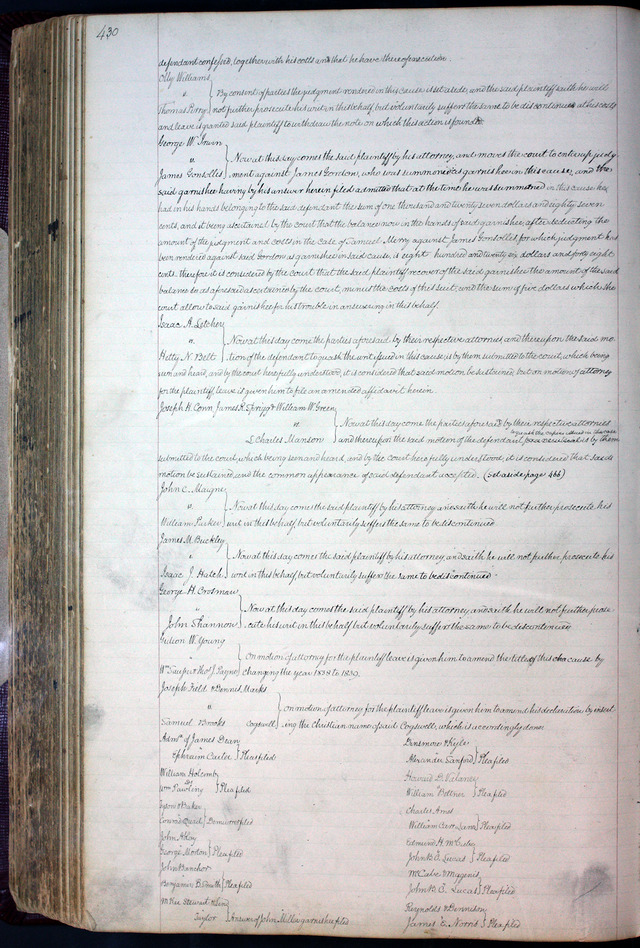 430
defendant confessed, together with his costs and that he have thereof execution.
Olly Williams
v.
By consent of parties the judgment rendered in this cause is set aside, and the said plaintiff saith he will
Thomas Perry not further prosecute his writ in this behalf but voluntarily suffers the same to be discontinued at his costs
and leave is granted said plaintiff to withdraw the note on which this action is founded
George W. Irwin
v.
Now at this day comes the said plaintiff by his attorney, and moves the court to enter up judg
James Gonsolles ment against James Gordon, who was summoned as garnishee in this cause, and the
said garnishee having by his answer herein filed admitted that at the time he was summoned in this cause he
had in his hands belonging to the said defendant the sum of one thousand and twenty seven dollars and eighty seven
cents, and it being ascertained by the court that the balance now in the hands of said garnishee, after deducting the
amount of the judgment and costs in the case of Samuel Merry against James Gonsolles for which judgment has
been rendered against said Gordon as garnishee in said cause, is eight hundred and twenty six dollars and forty eight
cents. therefore it is considered by the court that the said plaintiff recover of the said garnishee the amount of the said
balance so as aforesaid ascertained by the court, minus the costs of this suit and the sum of five dollars which the
court allow to said garnishee for his trouble in answering in this behalf.
Isaac A. Letcher
v.
Now at this day come the parties aforesaid by their respective attornies, and thereupon the said mo
Hetty N. Belt tion of the defendant to quash the writ issued in this cause is by them submitted to the court, which being
seen and heard, and by the court here fully understood, it is considered that said motion be sustained, but on motion of attorney
for the plaintiff, leave is given him to file an amended affidavit herein
Joseph H. Conn James R. Sprigg & William W. Green
v.
Now at this day come the parties aforesaid by their respective attornies
Charles Manson and thereupon the said motion of the defendant is by them
submitted to the court, which being seen and heard, and by the court here fully understood, it is considered that said
motion be sustained, and the common appearance of said defendant accepted. (Set aside page 466)
John C. Mayne
v.
Now at this day comes the said plaintiff by his attorney and saith he will not further prosecute his
William Parker writ in this behalf but voluntarily suffers the same to be discontinued
James M. Buckley
v.
Now at this day comes the said plaintiff by his attorney, and saith he will not further prosecute his
Isaac J. Hatch writ in this behalf, but voluntarily suffers the same to be discontinued
George H. Crosman
v.
Now at this day comes the said plaintiff by his attorney and saith he will not further prose
John Shannon cute his writ in this behalf but voluntarily suffers the same to be discontinued
Gideon W. Young
On motion of attorney for the plaintiff leave is given him to amend the title of this cause by
changing the year 1838 to 1839.
Joseph Field & Dennis Marks
v.
On motion of attorney for the plaintiff leave is given him to amend his declaration by insert
Samuel Brooks Cogswell ing the Christian name of said Cogswell, which is accordingly done
Admr. of James Dean
Ephraim Carter Pleas filed
William Holcomb
v.
Wm. Pawling Pleas filed
Tyson & Baker
Conrad Demurrer filed
John Alloy
George Morton Plea filed
John
Benjamin B. Smith Plea filed
McKee Stewart &
Taylor Answer of John Mills garnishee filed
Dinsmore & Kyle
Alexander Sanford Plea filed
Howard D.
William Bottner Plea filed
Charles Ames
William Carr Lane Plea filed
Edmund H. McCabe
John B. C. Lucas Plea filed
McCabe & Maginnis
John B. C. Lucas Plea filed
Reynolds & Dennison
James E. Norris Plea filed